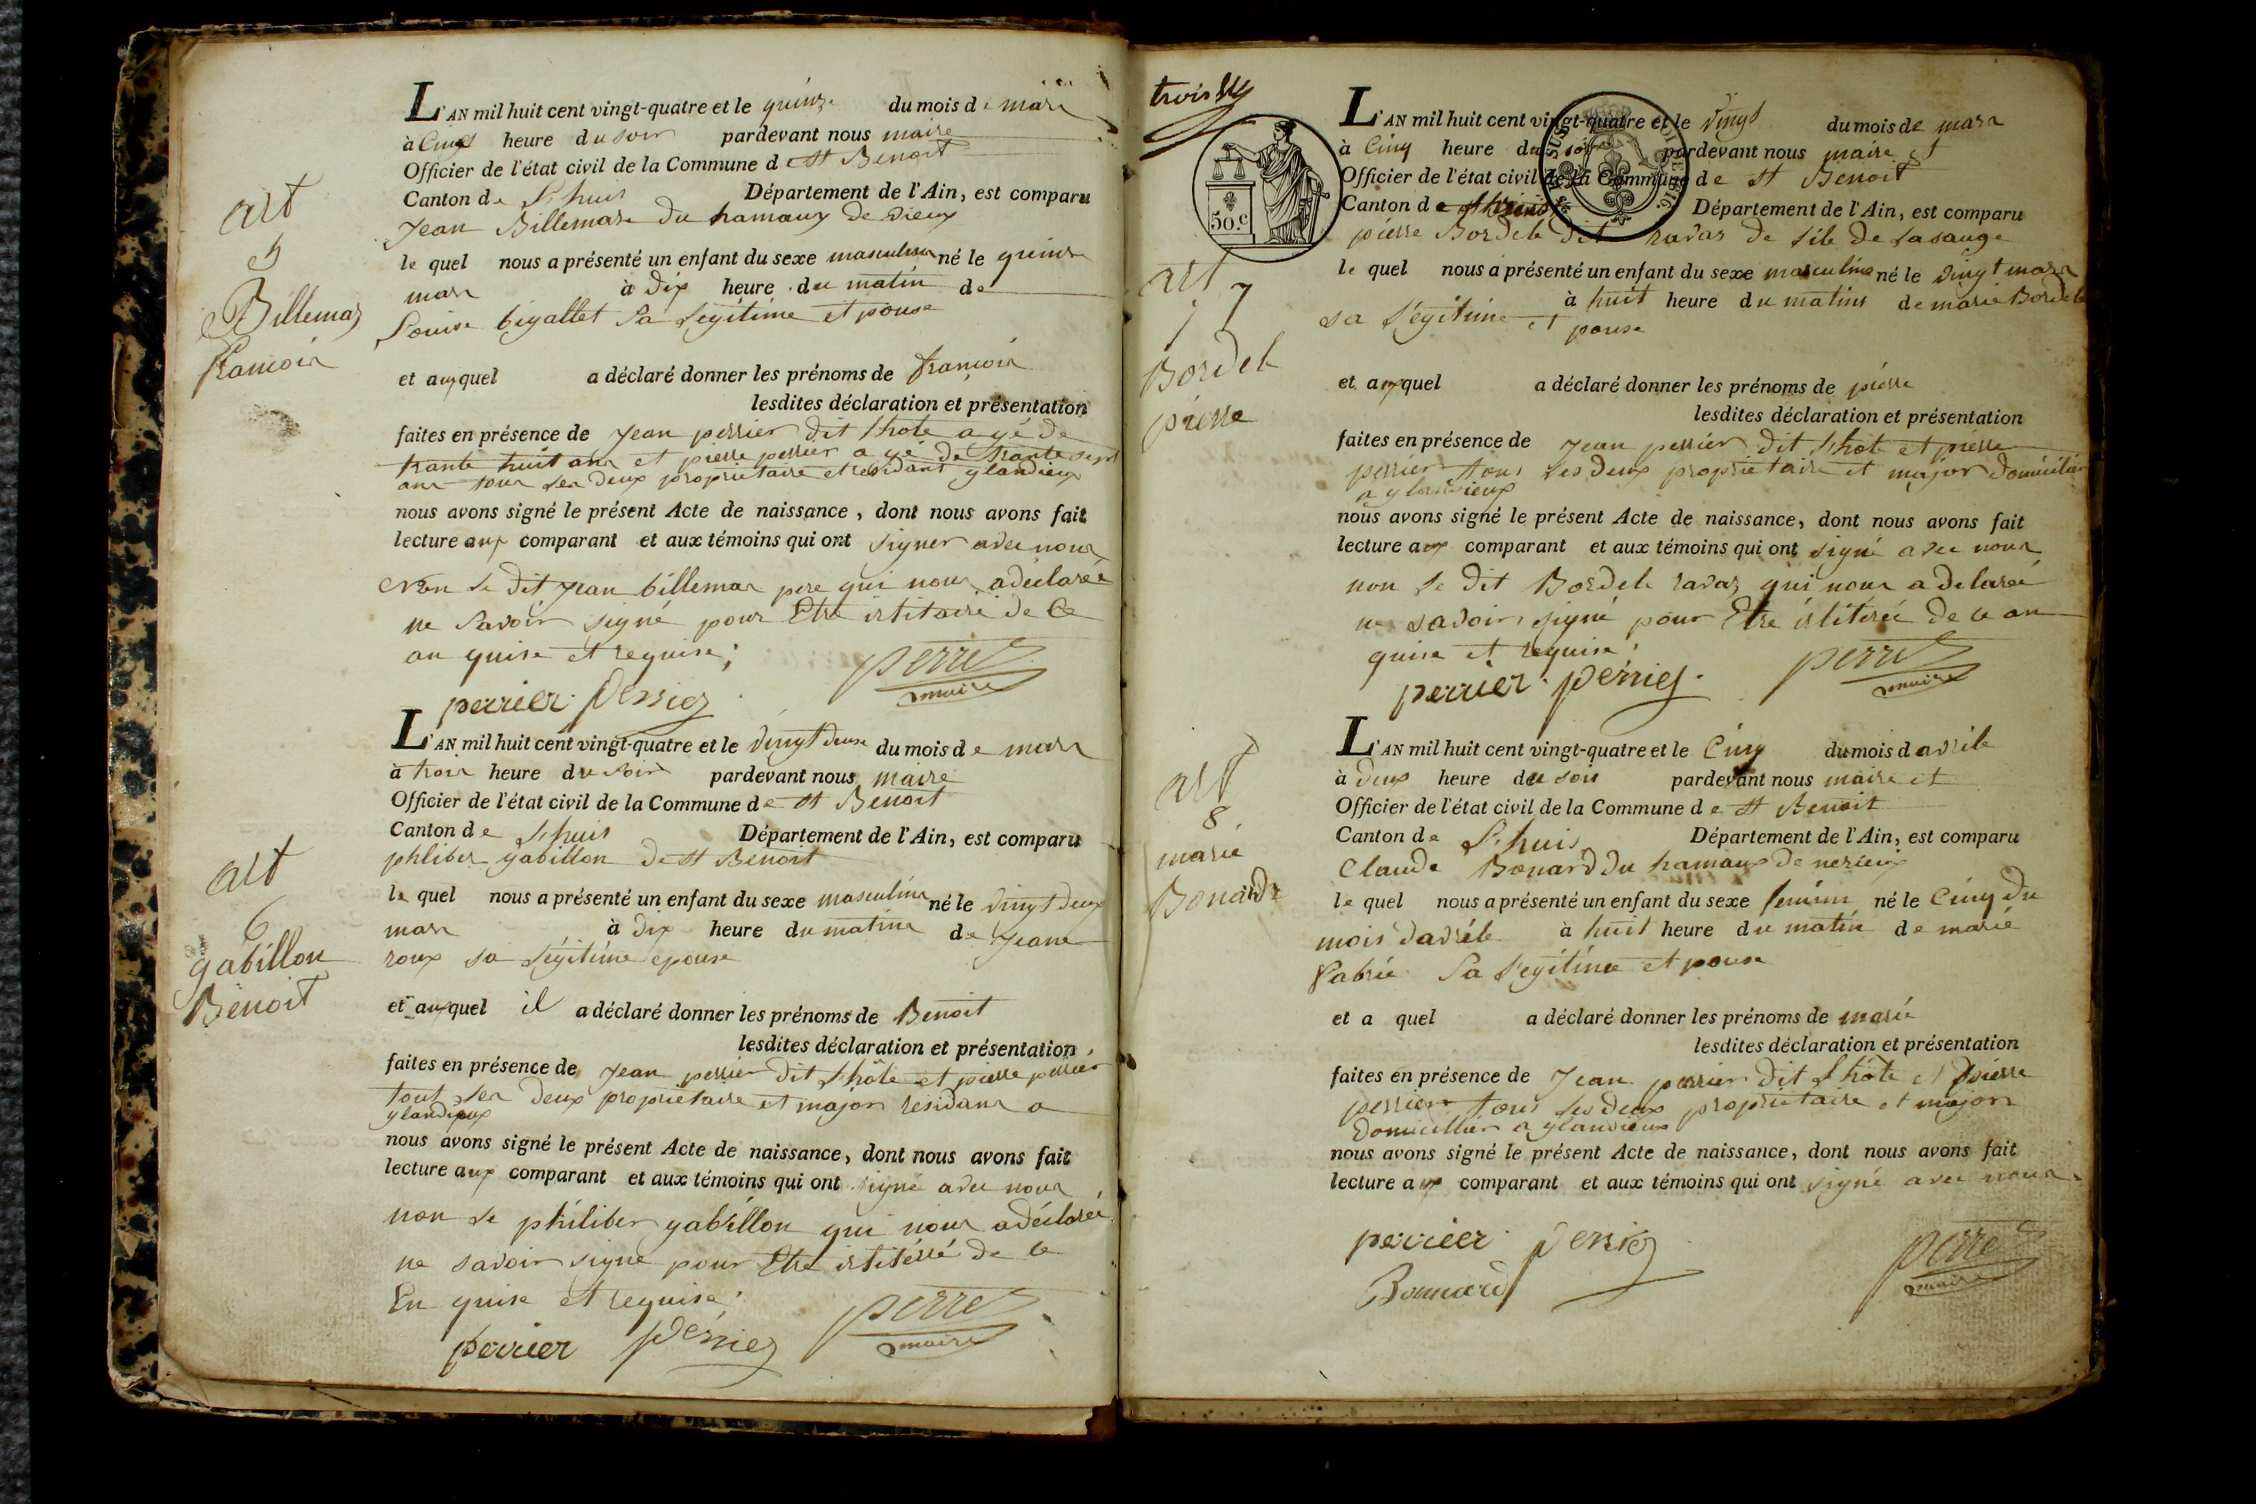 art
5
Billemaz
francois
L'AN mil huit cent vingt-quatre et le quinze du mois de mars
à cinq heure du soir pardevant nous maire
Officier de l'état civil de la Commune de St Benoit
Canton de L'huis Département de l'Ain, est comparu
Jean Billemase du hamaux de
le quel nous a présenté un enfant du sexe masculin né le quinze
mars à dix heure du matin de
Louise bigallet Sa Légitime et pouse
et auxquel a déclaré donner les prénoms de francois
lesdites déclaration et présentation
faites en présence de Jean perrier dit l'hote a gé de
trante huit ans et pierre perrier a gé de trante sept
ans tous les deux proprietaire et residant glandieux
nous avons signé le présent Acte de naissance, dont nous avons fait
lecture aux comparant et aux témoins qui ont signer avec nous
Non le dit Jean billemas pere qui nous a déclarée
ne Savoir signé pour Etre de Ce
an quise et requise;
perrier perrier perret
maire
art
6
gabillon
Benoit
L'AN mil huit cent vingt-quatre et le vingt deux du mois de mars
à trois heure du soir pardevant nous maire
Officier de l'état civil de la Commune de St Benoit
Canton de L'huis Département de l'Ain, est comparu
phliber gabillon de St Benoit
le quel nous a présenté un enfant du sexe masculin né le vingt deux
mars à dix heure du matin de Jeane
roux sa Légitime epouse
et auxquel il a déclaré donner les prénoms de Benoit
lesdites déclaration et présentation
faites en présence de Jean perrier dit L'hôte et pierre perrier
tout les deux proprietaire et major residans a
glandieux
nous avons signé le présent Acte de naissance, dont nous avons fait
lecture aux comparant et aux témoins qui ont signé avec nous
non le philiber gabillon qui nous a déclarée
ne savoir signé pour Etre de ce
En quise et requise;
perrier perrier perret
maire
trois
50.c
art
7
Bordel
pierre
L'AN mil huit cent vingt-quatre et le vingt du mois de mars
à cinq heure du soir pardevant nous maire et
Officier de l'état civil de la Commune de St Benoit
Canton de Département de l'Ain, est comparu
pierre Bordele dit ravas de
le quel nous a présenté un enfant du sexe masculin né le vingt mars
à huit heure du matins de marie Bordele
sa Légitime et pouse
et auxquel a déclaré donner les prénoms de pierre
lesdites déclaration et présentation
faites en présence de Jean perrier dit L'hote et pierre
perrier tous les deux proprietaire et major domicilier
a glandieux
nous avons signé le présent Acte de naissance, dont nous avons fait
lecture aux comparant et aux témoins qui ont signé avec nous
non le dit Bordele ravas qui nous a delaréé
ne savoir signé pour Etre de ce an
quise et requise;
perrier perrier perret
maire
art
8
marie
Bonarde
L'AN mil huit cent vingt-quatre et le Cinq du mois d avrile
à deux heure du soir pardevant nous maire et
Officier de l'état civil de la Commune de St Benoit
Canton de L'huis Département de l'Ain, est comparu
Claude Bonard du hamaux de
le quel nous a présenté un enfant du sexe feminin né le Cinq du
mois d'avrile à huit heure du matin de marie
Sa Légitime et pouse
et a quel a déclaré donner les prénoms de marie
lesdites déclaration et présentation
faites en présence de Jean perrier dit L'hôte et pierre
perrier tous les deux proprietaire et major
Domicillier a glandieux
nous avons signé le présent Acte de naissance, dont nous avons fait
lecture aux comparant et aux témoins qui ont signé avec nous
perrier perrier perret
Bonnard maire